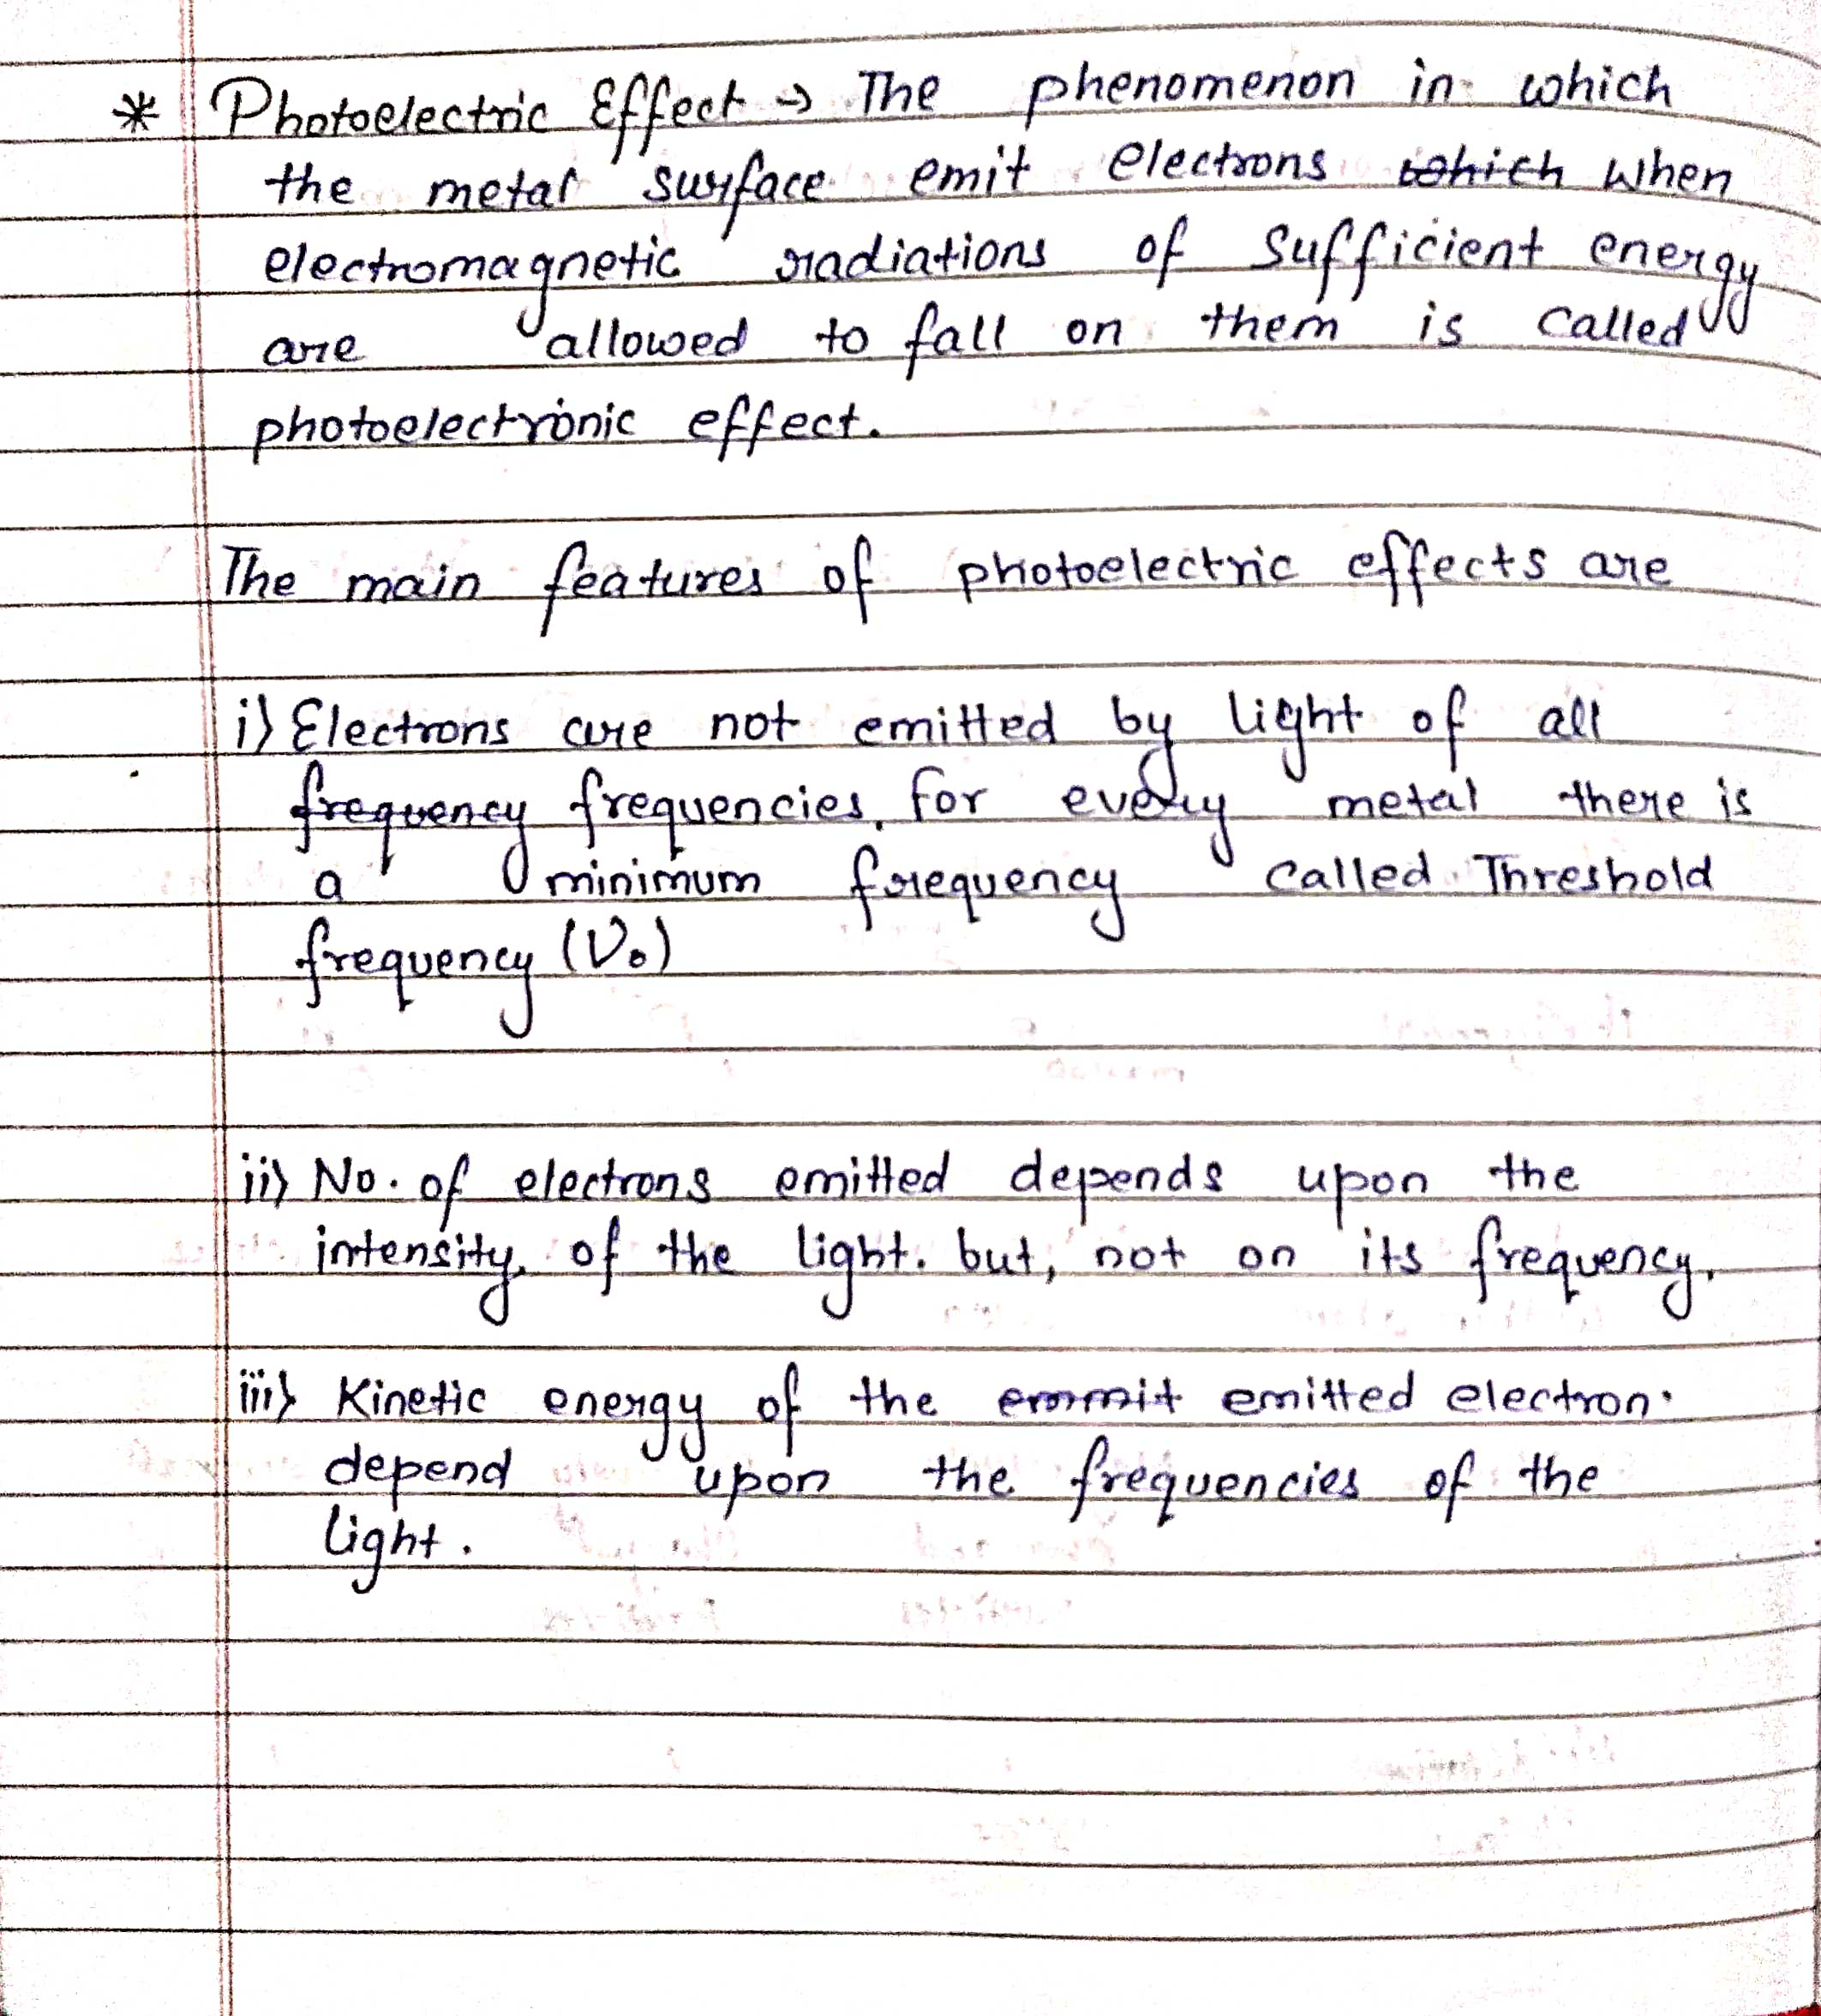 * Photoelectric Effect → The phenomenon in which
the metal surface emit electrons ~~which~~ when
electromagnetic radiations of sufficient energy
are allowed to fall on them is called
photoelectronic effect.
The main features of photoelectric effects are
i) Electrons are not emitted by light of all
~~frequency~~ frequencies. For every metal there is
a minimum frequency called Threshold
frequency (ν₀)
ii) No. of electrons emitted depends upon the
intensity. of the light. but, not on its frequency.
iii) Kinetic energy of the ~~emmit~~ emitted electron.
depend upon the frequencies of the
light.